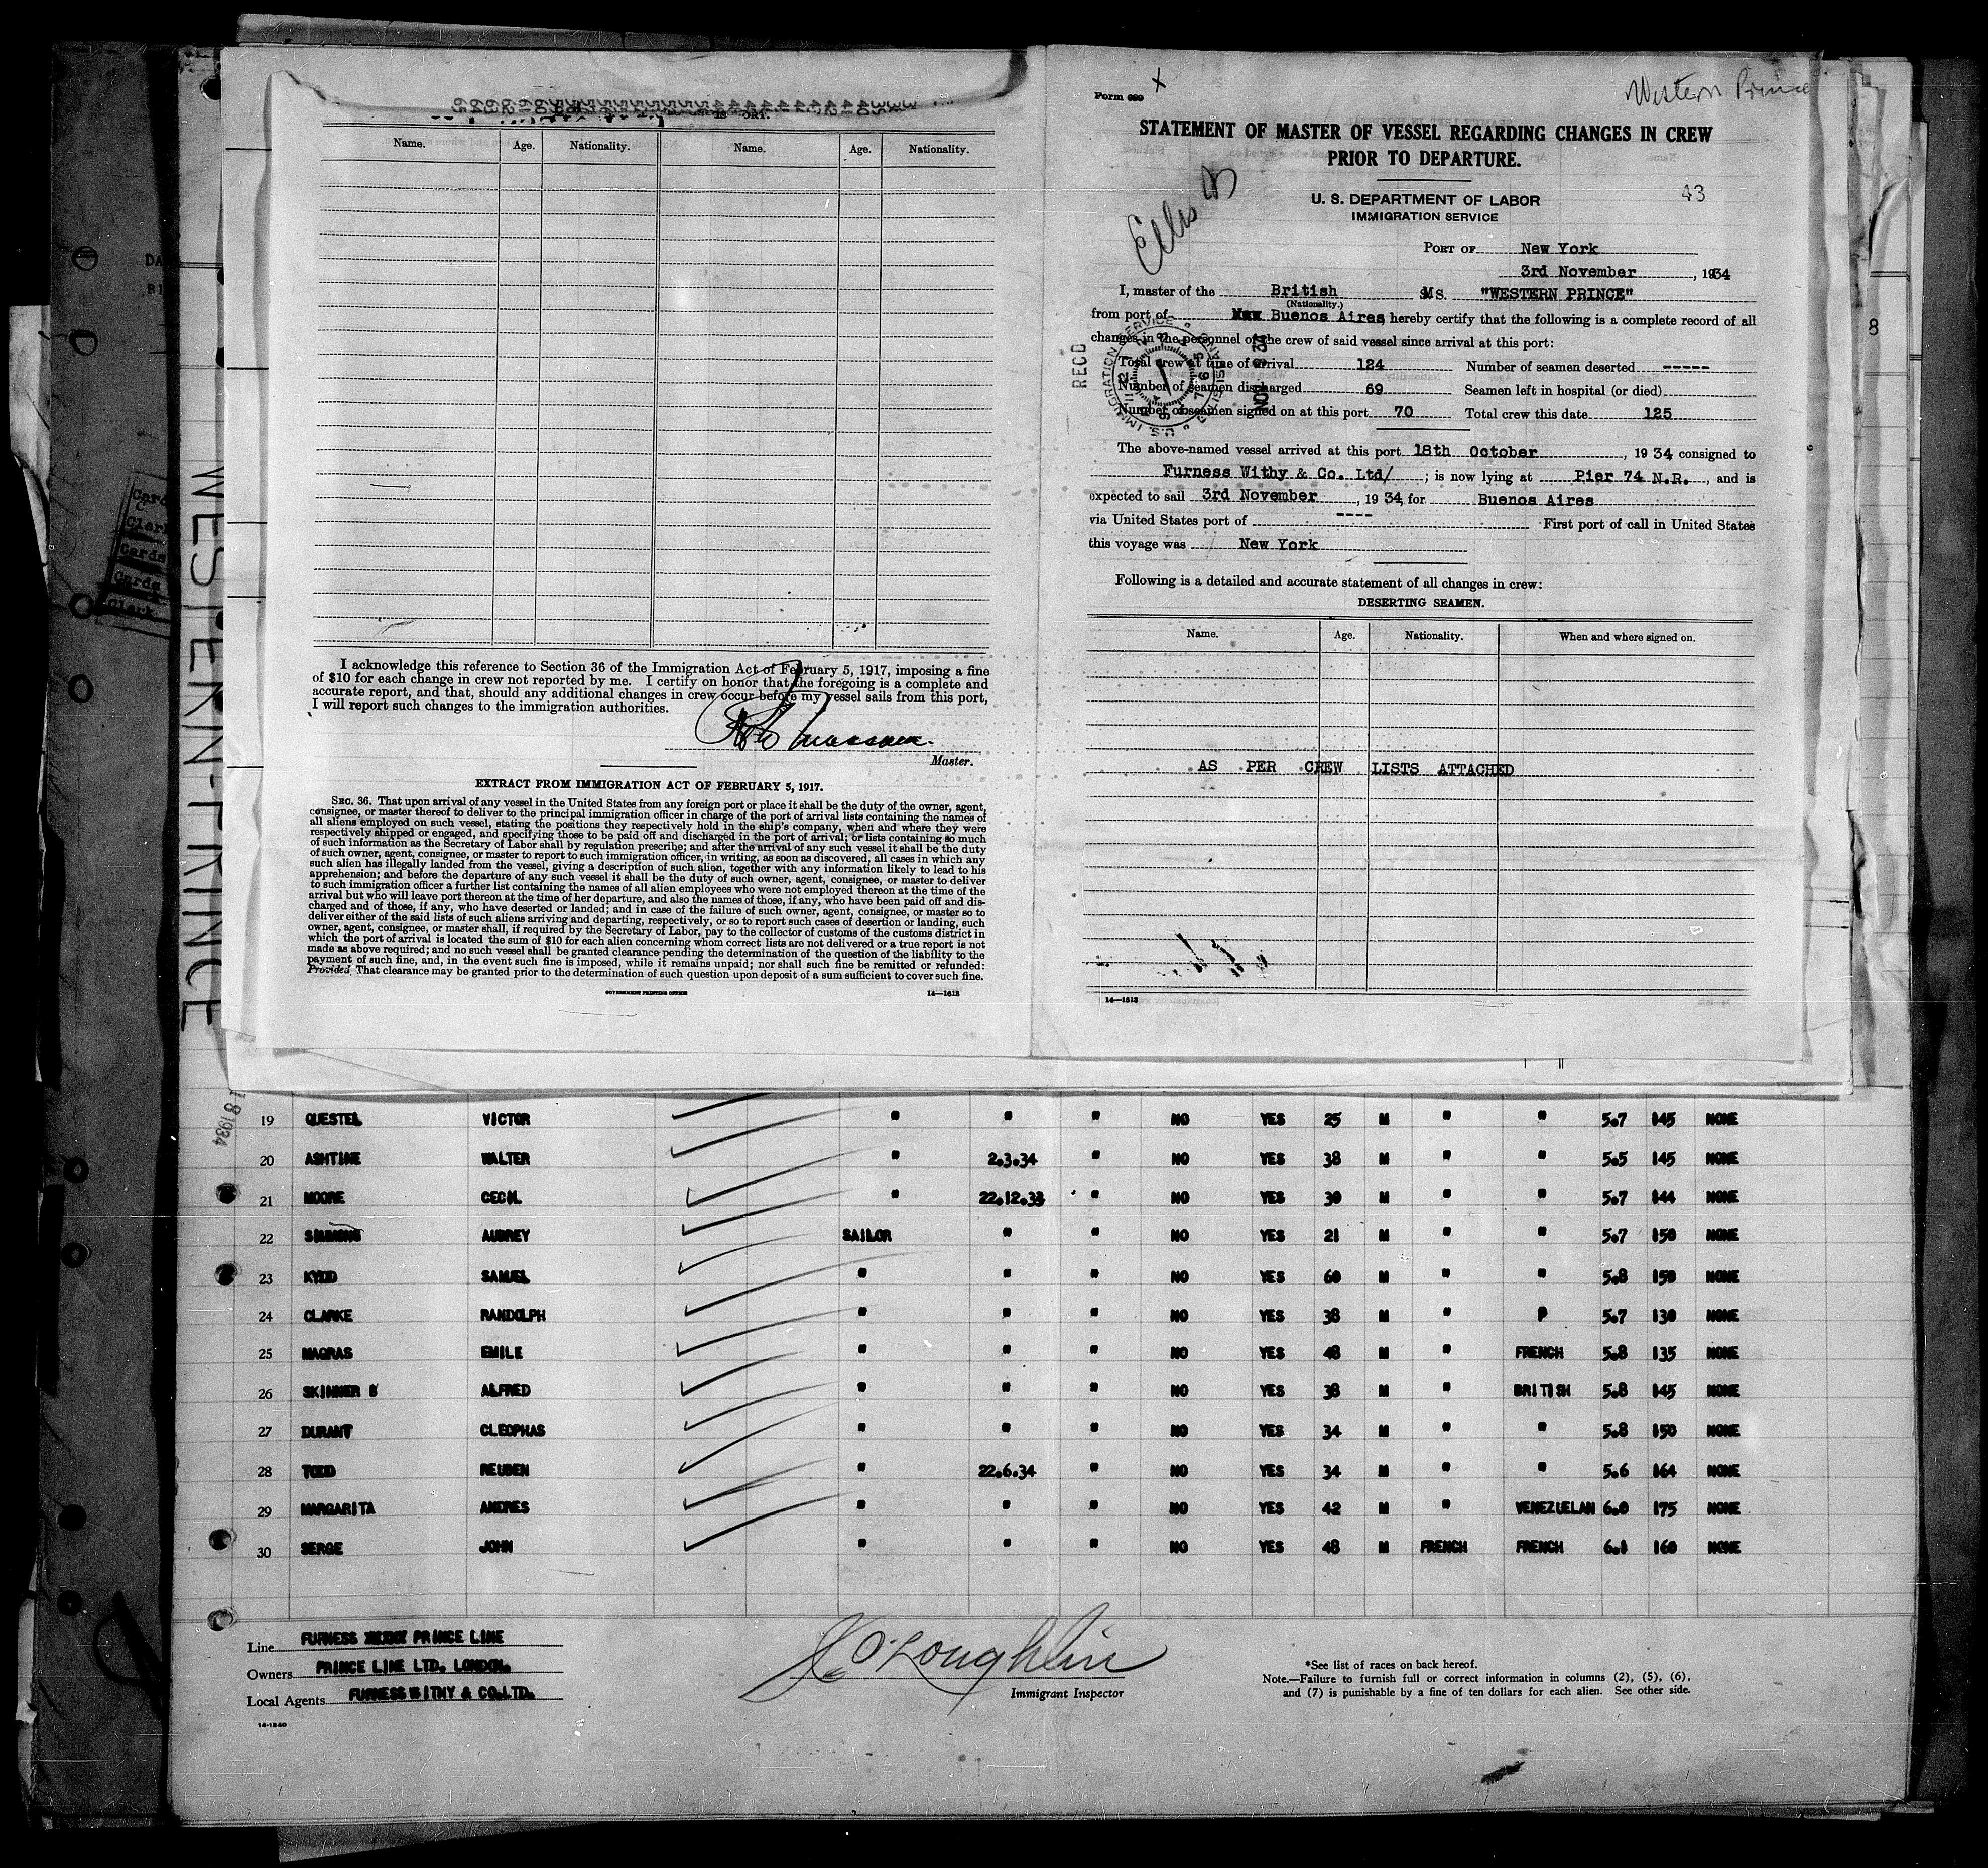 WESTERN-PRINCE
Card
Clerk
Cards
Cards
Clerk
Name. Age. Nationality. Name. Age. Nationality.
I acknowledge this reference to Section 36 of the Immigration Act of February 5, 1917, imposing a fine
of $10 for each change in crew not reported by me. I certify on honor that the foregoing is a complete and
accurate report, and that, should any additional changes in crew occur before my vessel sails from this port,
I will report such changes to the immigration authorities.
Master.
EXTRACT FROM IMMIGRATION ACT OF FEBRUARY 5, 1917.
SEC. 36. That upon arrival of any vessel in the United States from any foreign port or place it shall be the duty of the owner, agent,
consignee, or master thereof to deliver to the principal immigration officer in charge of the port of arrival lists containing the names of
all aliens employed on such vessel, stating the positions they respectively hold in the ship's company, when and where they were
respectively shipped or engaged, and specifying those to be paid off and discharged in the port of arrival; or lists containing so much
of such information as the Secretary of Labor shall by regulation prescribe; and after the arrival of any such vessel it shall be the duty
of such owner, agent, consignee, or master to report to such immigration officer, in writing, as soon as discovered, all cases in which any
such alien has illegally landed from the vessel, giving a description of such alien, together with any information likely to lead to his
apprehension; and before the departure of any such vessel it shall be the duty of such owner, agent, consignee, or master to deliver
to such immigration officer a further list containing the names of all alien employees who were not employed thereon at the time of the
arrival but who will leave port thereon at the time of her departure, and also the names of those, if any, who have been paid off and dis-
charged and of those, if any, who have deserted or landed; and in case of the failure of such owner, agent, consignee, or master so to
deliver either of the said lists of such aliens arriving and departing, respectively, or so to report such cases of desertion or landing, such
owner, agent, consignee, or master shall, if required by the Secretary of Labor, pay to the collector of customs of the customs district in
which the port of arrival is located the sum of $10 for each alien concerning whom correct lists are not delivered or a true report is not
made as above required; and no such vessel shall be granted clearance pending the determination of the question of the liability to the
payment of such fine, and, in the event such fine is imposed, while it remains unpaid; nor shall such fine be remitted or refunded:
Provided, That clearance may be granted prior to the determination of such question upon deposit of a sum sufficient to cover such fine.
GOVERNMENT PRINTING OFFICE 14—1613
Form 689 X
Western Prince
STATEMENT OF MASTER OF VESSEL REGARDING CHANGES IN CREW
PRIOR TO DEPARTURE.
U. S. DEPARTMENT OF LABOR 43
IMMIGRATION SERVICE
Ellis
PORT OF New York
3rd November, 1934
I, master of the British MS "WESTERN PRINCE"
(Nationality.)
from port of Buenos Aires, hereby certify that the following is a complete record of all
changes in the personnel of the crew of said vessel since arrival at this port:
Total crew at time of arrival 124 Number of seamen deserted -----
Number of seamen discharged 69 Seamen left in hospital (or died)
Number of seamen signed on at this port 70 Total crew this date 125
RECD
U.S. IMMIGRATION SERVICE
The above-named vessel arrived at this port 18th October, 1934 consigned to
Furness Withy & Co. Ltd/; is now lying at Pier 74 N.R., and is
expected to sail 3rd November, 1934, for Buenos Aires
via United States port of ---- First port of call in United States
this voyage was New York
Following is a detailed and accurate statement of all changes in crew:
DESERTING SEAMEN.
Name. Age. Nationality. When and where signed on.
AS PER CREW LISTS ATTACHED
14—1613
8
18 1934
19 QUESTEL VICTOR " " " NO YES 25 M " " 5.7 145 NONE
20 ASHTINE WALTER " 2.3.34 " NO YES 38 M " " 5.5 145 NONE
21 MOORE CECIL " 22.12.33 " NO YES 30 M " " 5.7 144 NONE
22 SIMMONS AUBREY SAILOR " " NO YES 21 M " " 5.7 150 NONE
23 KYDD SAMUEL " " " NO YES 60 M " " 5.8 150 NONE
24 CLARKE RANDOLPH " " " NO YES 38 M " " 5.7 130 NONE
25 MAGRAS EMILE " " " NO YES 48 M " FRENCH 5.8 135 NONE
26 SKINNER ALFRED " " " NO YES 38 M " BRITISH 5.8 145 NONE
27 DURANT CLEOPHAS " " " NO YES 34 M " " 5.8 150 NONE
28 TODD REUBEN " 22.6.34 " NO YES 34 M " " 5.6 164 NONE
29 MARGARITA ANDRES " " " NO YES 42 M " VENEZUELAN 6.0 175 NONE
30 SERGE JOHN " " " NO YES 48 M FRENCH FRENCH 6.1 160 NONE
Line FURNESS PRINCE LINE
Owners PRINCE LINE LTD. LONDON.
Local Agents FURNESS WITHY & CO.LTD.
14-1240
O'Loughlin
Immigrant Inspector
*See list of races on back hereof.
Note.—Failure to furnish full or correct information in columns (2), (5), (6),
and (7) is punishable by a fine of ten dollars for each alien. See other side.